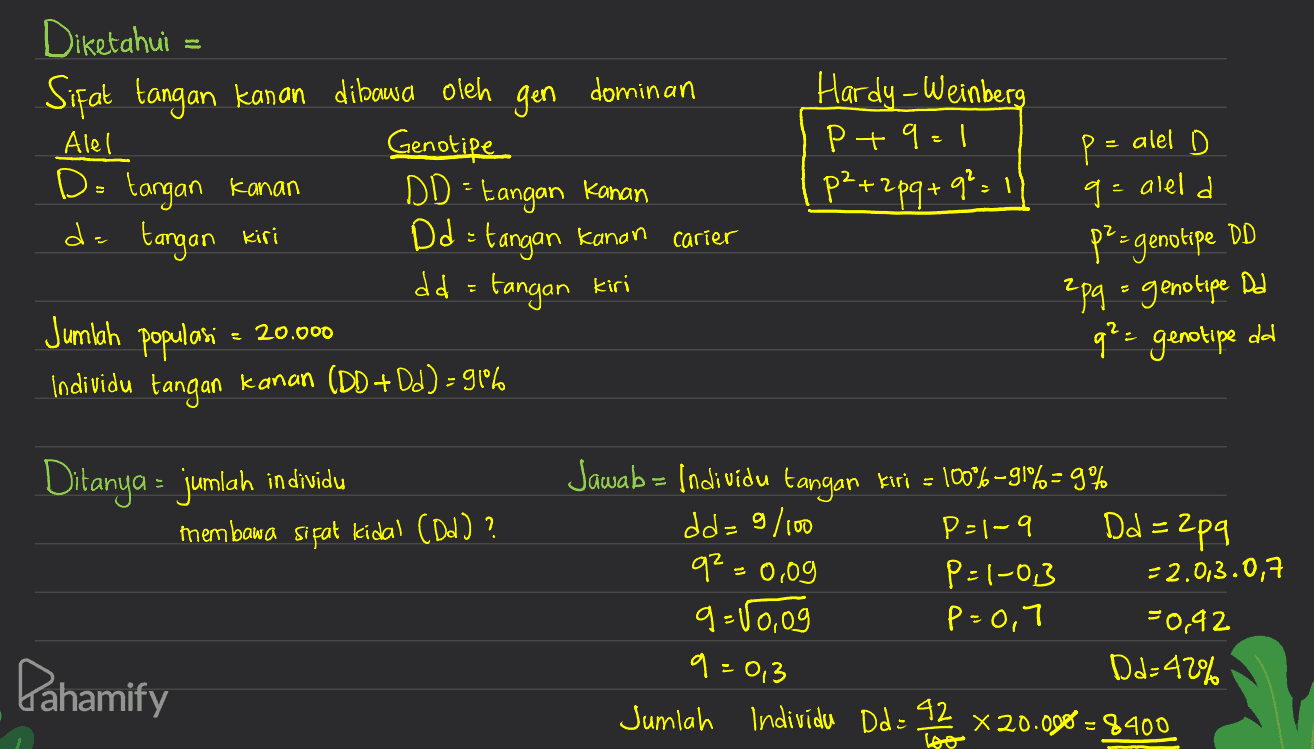 Diketahui =
Sifat tangan kanan dibawa oleh gen dominan
Alel
D = tangan kanan
d = tangan kiri
Genotipe
DD = tangan kanan
Dd = tangan kanan carier
dd = tangan kiri
Hardy - Weinberg
P + q = 1
p² + 2pq + q² = 1
p = alel D
q = alel d
p² = genotipe DD
2pq = genotipe Dd
q² = genotipe dd
Jumlah populasi = 20.000
Individu tangan kanan (DD + Dd) = 91%
Ditanya = jumlah individu
membawa sifat kidal (Dd) ?
Jawab = Individu tangan kiri = 100% - 91% = 9%
dd = 9/100
q² = 0,09
q = √0,09
q = 0,3
P = 1 - q
P = 1 - 0,3
P = 0,7
Dd = 2pq
= 2.0,3.0,7
= 0,42
Dd = 42%
Jumlah Individu Dd = 42/100 x 20.000 = 8400
Pahamify